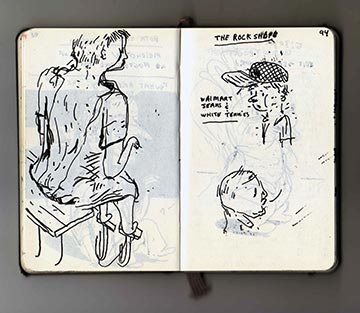 THE ROCK
94
WALMART
JEANS &
WHITE TENNIES